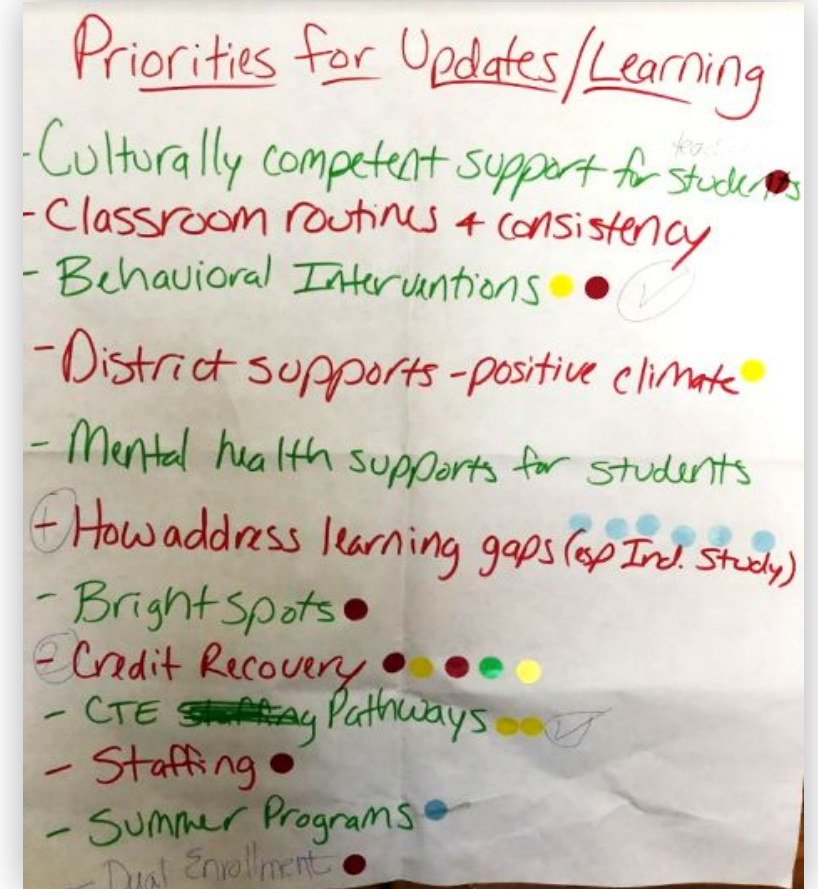 Priorities for Updates/Learning
- Culturally competent support for students
- Classroom routines + consistency
- Behavioral Interventions
- District supports - positive climate
- Mental health supports for students
- How address learning gaps (esp Ind. Study)
- Bright spots
- Credit Recovery
- CTE Pathways
- Staffing
- Summer Programs
- Dual Enrollment